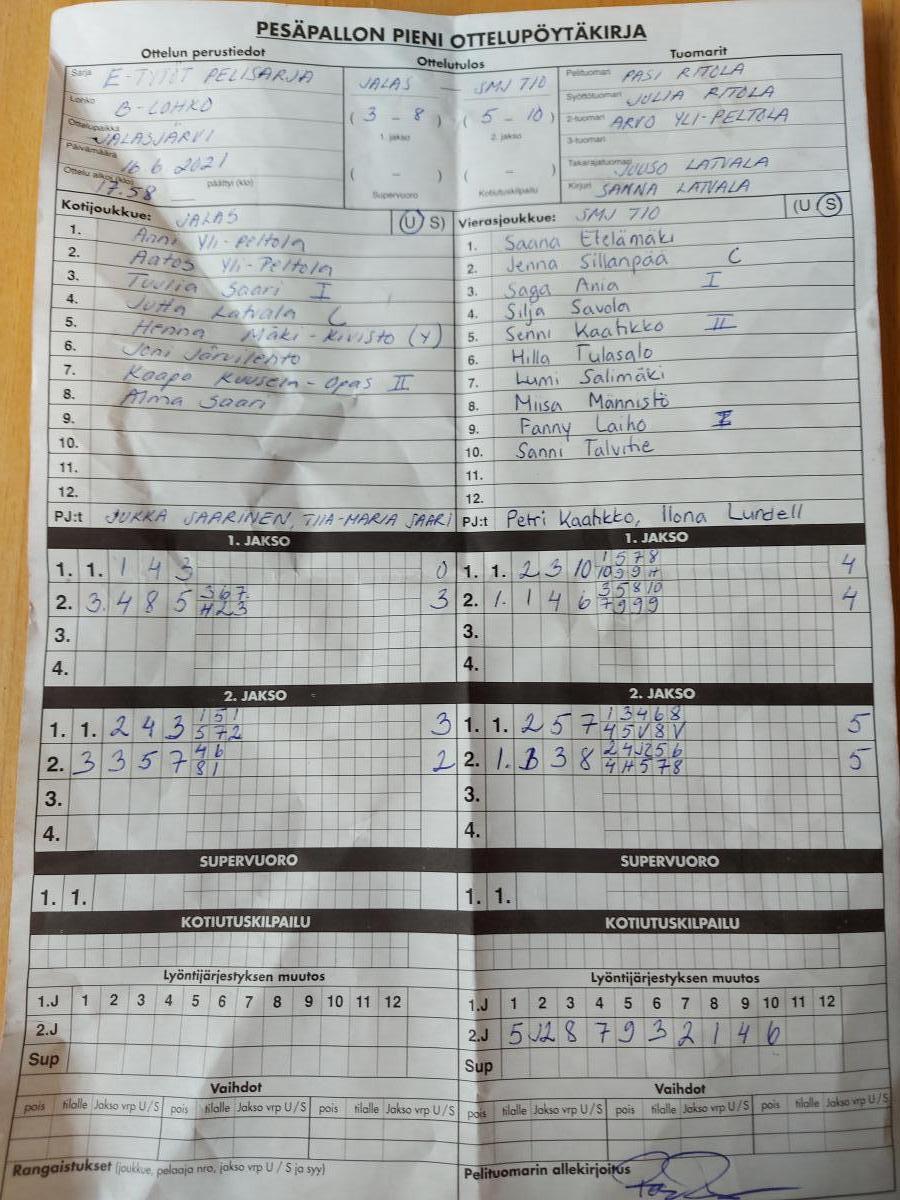 PESÄPALLON PIENI OTTELUPÖYTÄKIRJA
Ottelun perustiedot
Ottelutulos
Tuomarit
Sarja E-TYTÖT PELISARJA
JALAS — SMJ T10
Pelituomari PASI RITOLA
Lohko B-LOHKO
( 3 - 8 ) ( 5 - 10 )
Syöttötuomari JULIA RITOLA
Ottelupaikka JALASJÄRVI
1. jakso 2. jakso
2-tuomari ARVO YLI-PELTOLA
3-tuomari
Päivämäärä 16.6 2021
( - ) ( - )
Takarajatuomari JUUSO LATVALA
Ottelu alkoi (klo) 17.58 päättyi (klo)
Supervuoro Kotiutuskilpailu
Kirjuri SANNA LATVALA
Kotijoukkue: JALAS (U S)
Vierasjoukkue: SMJ T10 (U S)
1. Anni Yli-Peltola
1. Saana Etelämäki
2. Aatos Yli-Peltola
2. Jenna Sillanpää C
3. Tuulia Saari I
3. Saga Ania I
4. Jutta Latvala C
4. Silja Savola
5. Henna Mäki-Kivistö (Y)
5. Senni Kaahkko II
6. Joni Järvilehto
6. Hilla Tulasalo
7. Kaapo Kuusela-Opas II
7. Lumi Salimäki
8. Alma Saari
8. Miisa Männistö
9.
9. Fanny Laiho I
10.
10. Sanni Talvitie
11.
11.
12.
12.
PJ:t JUKKA SAARINEN, TIIA-MARIA SAARI
PJ:t Petri Kaahkko, Ilona Lundell
1. JAKSO
1. JAKSO
1. 1. 1 4 3 0
1. 1. 2 3 10 1 5 7 8 10 9 9 H 4
2. 3. 4 8 5 3 6 7 H 2 3 3
2. 1. 1 4 6 3 5 8 10 7 9 9 9 4
3.
3.
4.
4.
2. JAKSO
2. JAKSO
1. 1. 2 4 3 1 5 1 5 7 2 3
1. 1. 2 5 7 1 3 4 6 8 4 5 V 8 V 5
2. 3 3 5 7 4 6 8 1 2
2. 1. 3 3 8 2 4 J2 5 6 4 H 5 7 8 5
3.
3.
4.
4.
SUPERVUORO
SUPERVUORO
1. 1.
1. 1.
KOTIUTUSKILPAILU
KOTIUTUSKILPAILU
Lyöntijärjestyksen muutos
Lyöntijärjestyksen muutos
1.J 1 2 3 4 5 6 7 8 9 10 11 12
1.J 1 2 3 4 5 6 7 8 9 10 11 12
2.J
2.J 5 J2 8 7 9 3 2 1 4 6
Sup
Sup
Vaihdot
Vaihdot
pois tilalle Jakso vrp U / S pois tilalle Jakso vrp U / S pois tilalle Jakso vrp U / S
pois tilalle Jakso vrp U / S pois tilalle Jakso vrp U / S pois tilalle Jakso vrp U / S
Rangaistukset (joukkue, pelaaja nro, jakso vrp U / S ja syy)
Pelituomarin allekirjoitus